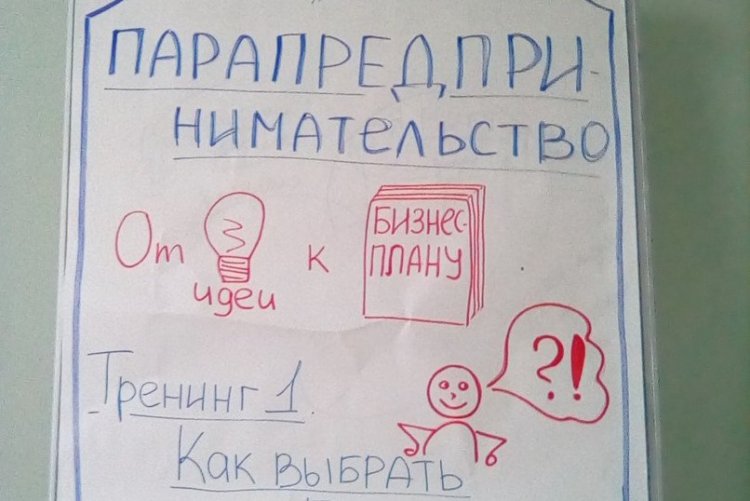 ПАРАПРЕДПРИ-
НИМАТЕЛЬСТВО
От идеи к БИЗНЕС-
ПЛАНУ
?!
Тренинг 1.
Как выбрать